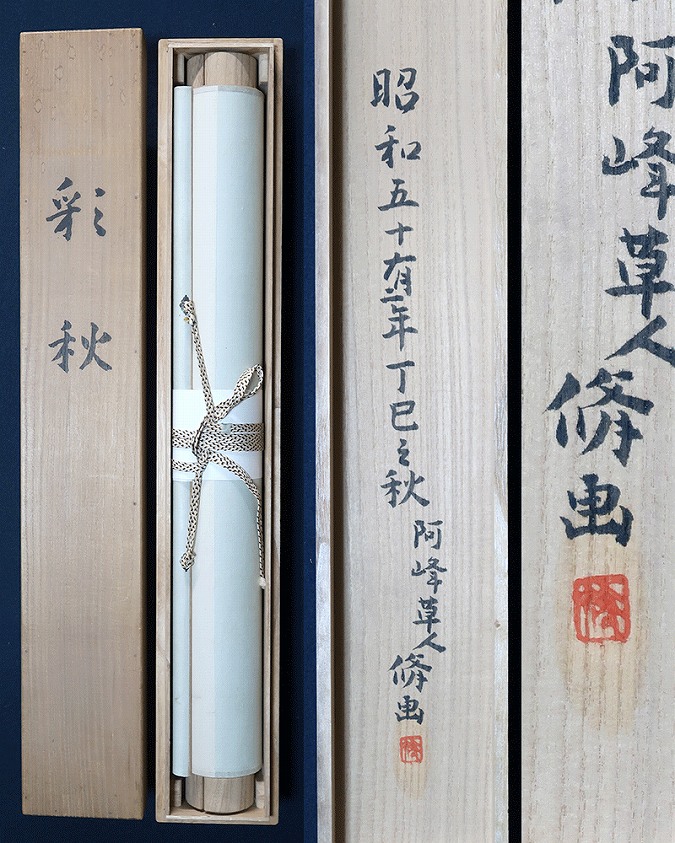 彩秋
昭和五十有二年丁巳之秋
阿峰草人脩画
阿峰草人
脩画